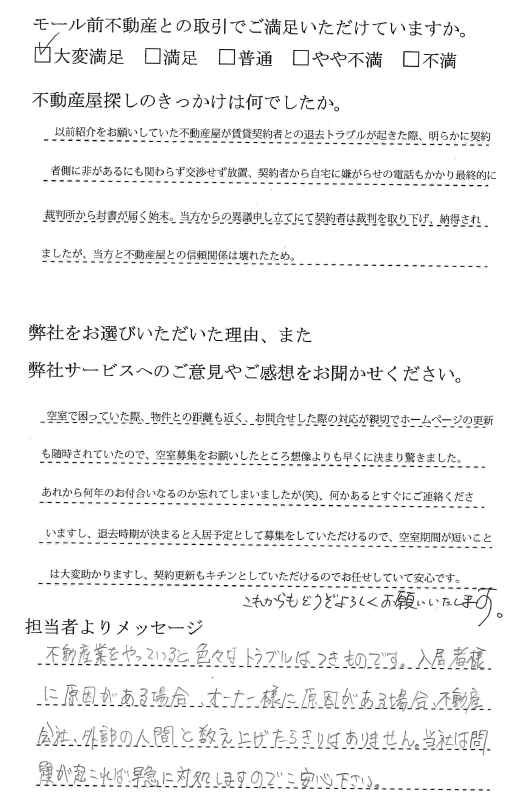 モール前不動産との取引でご満足いただけていますか。
☑大変満足 □満足 □普通 □やや不満 □不満
不動産屋探しのきっかけは何でしたか。
以前紹介をお願いしていた不動産屋が賃貸契約者との退去トラブルが起きた際、明らかに契約
者側に非があるにも関わらず交渉せず放置、契約者から自宅に嫌がらせの電話もかかり最終的に
裁判所から封書が届く始末。当方からの異議申し立てにて契約者は裁判を取り下げ、納得され
ましたが、当方と不動産屋との信頼関係は壊れたため。
弊社をお選びいただいた理由、また
弊社サービスへのご意見やご感想をお聞かせください。
空室で困っていた際、物件との距離も近く、お問合せした際の対応が親切でホームページの更新
も随時されていたので、空室募集をお願いしたところ想像よりも早くに決まり驚きました。
あれから何年のお付合いなるのか忘れてしまいましたが(笑)、何かあるとすぐにご連絡くださ
いますし、退去時期が決まると入居予定として募集をしていただけるので、空室期間が短いこと
は大変助かりますし、契約更新もキチンとしていただけるのでお任せしていて安心です。
これからもどうぞよろしくお願いいたします。
担当者よりメッセージ
不動産業をやっていると色々なトラブルはつきものです。入居者様
に原因がある場合、オーナー様に原因がある場合、不動産
会社、外部の人間と数え上げたらきりはありません。当社は問
題が起これば早急に対処しますのでご安心下さい。